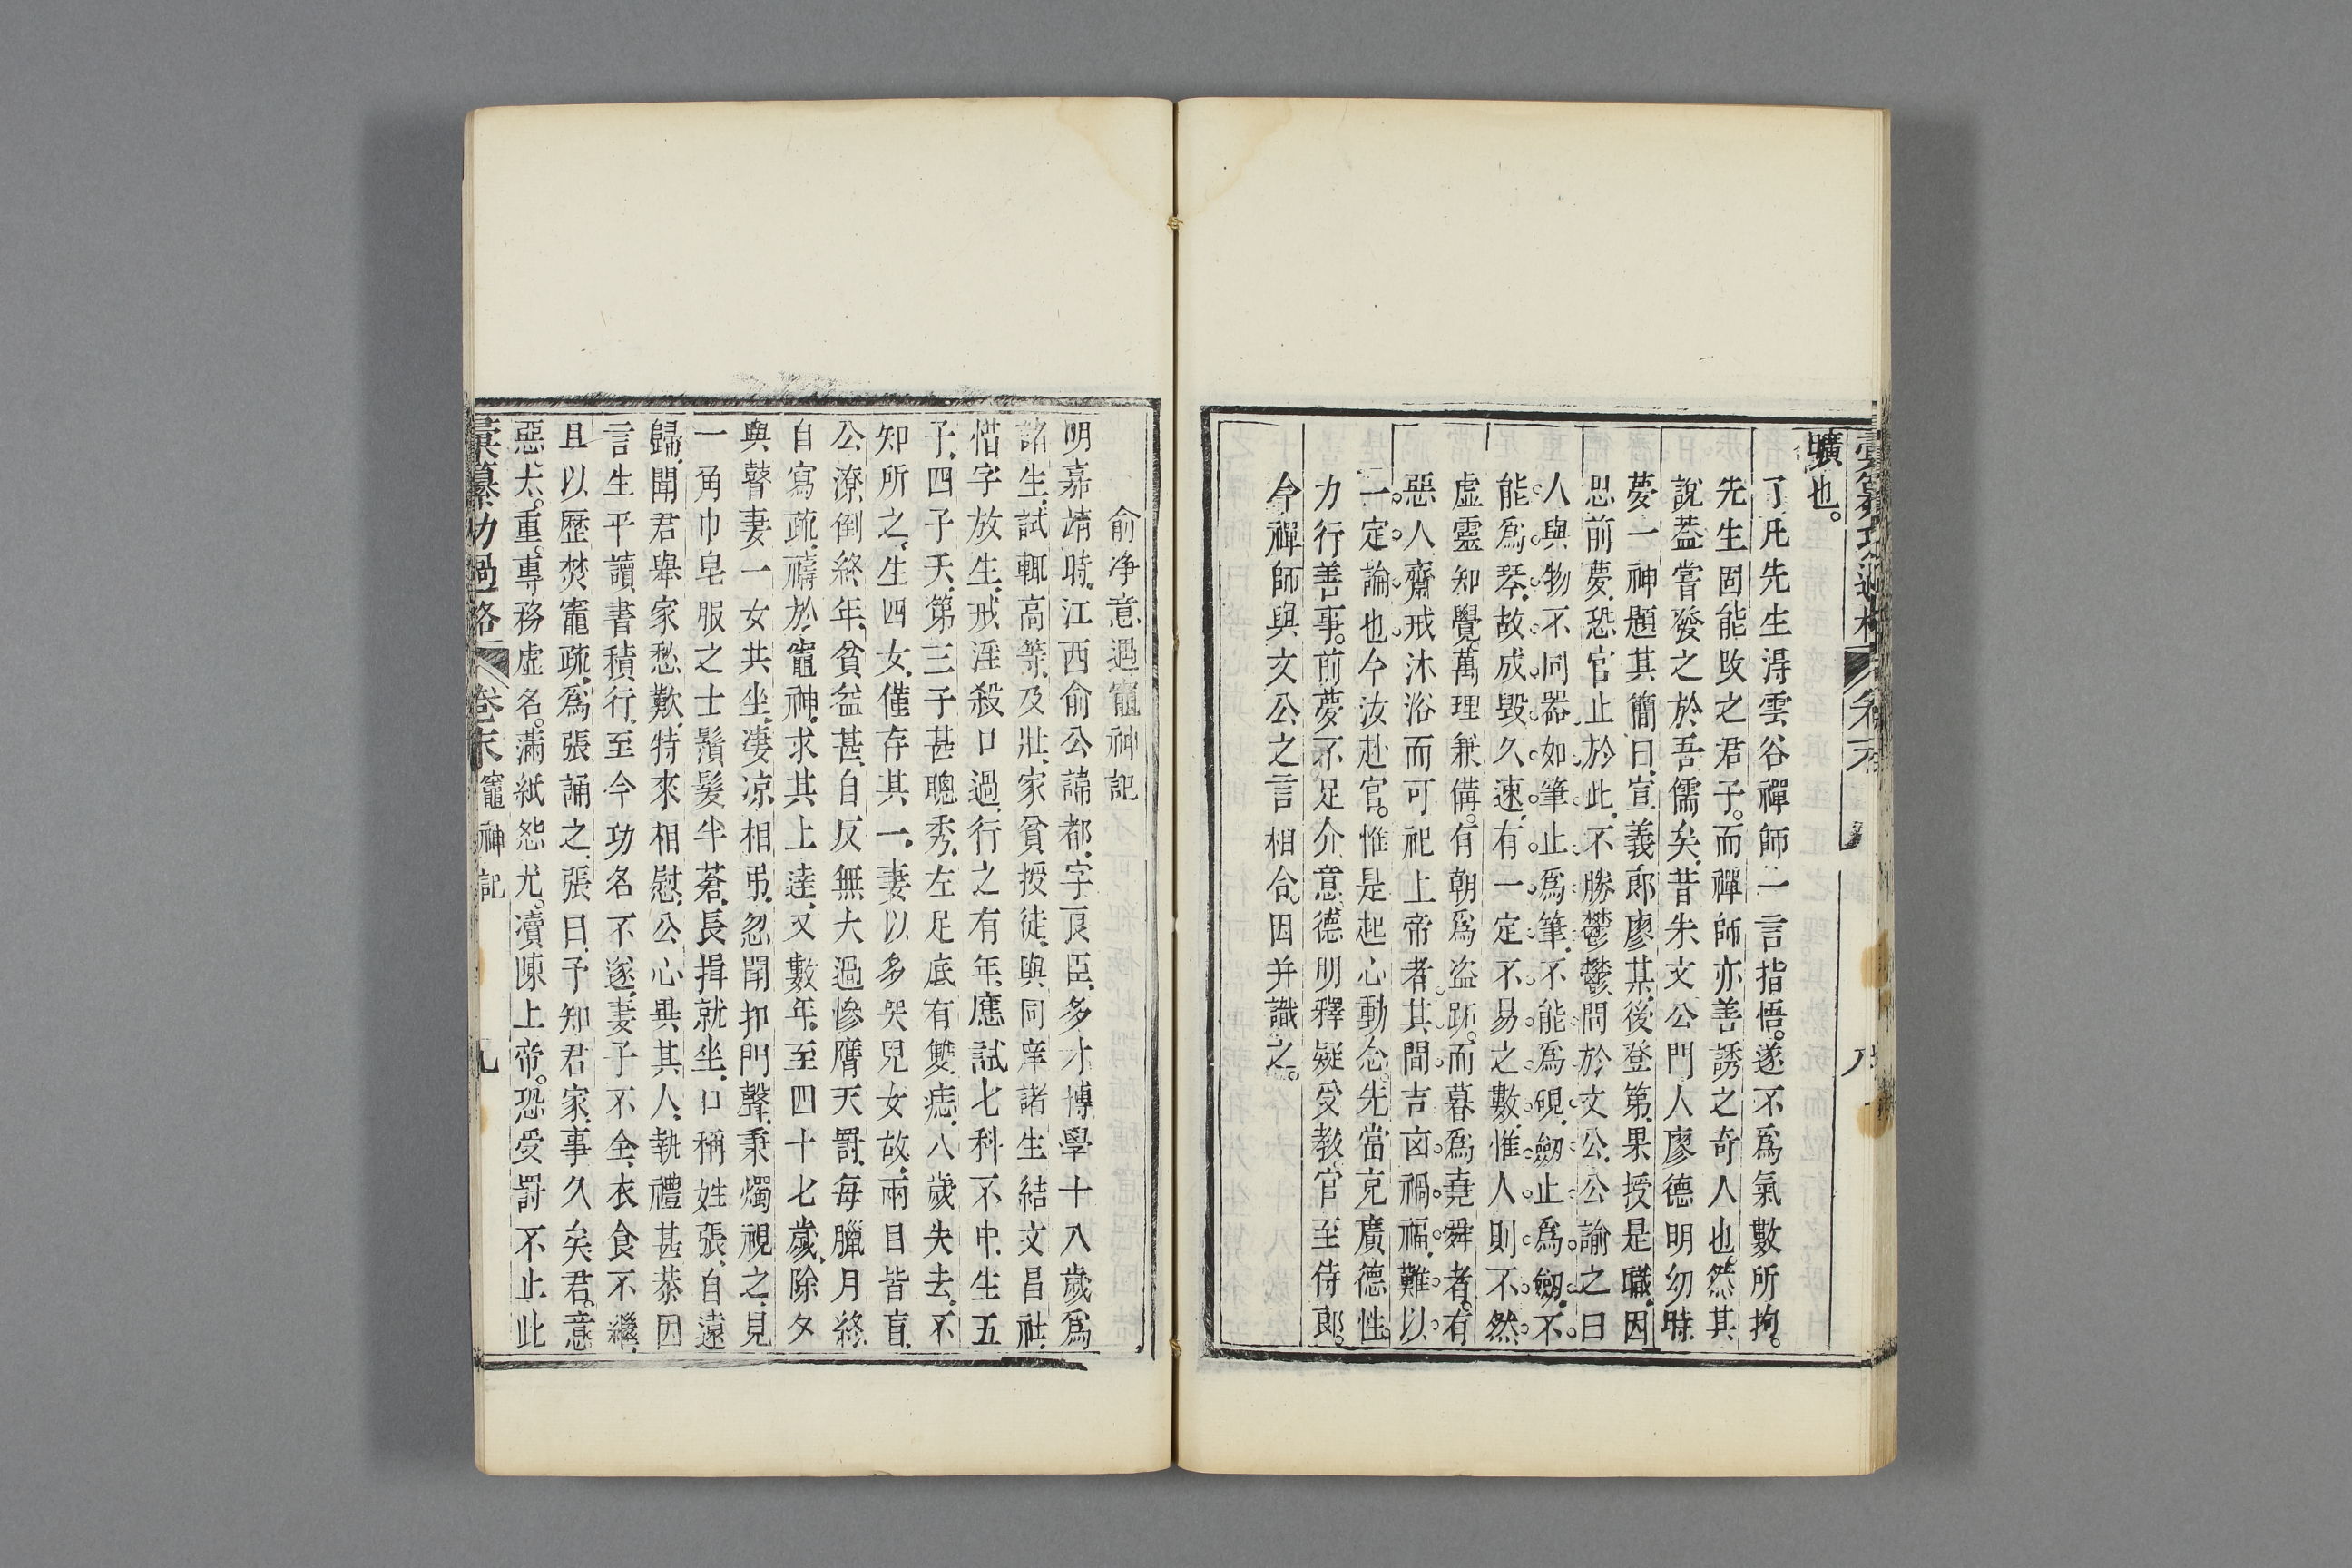 曠也。
了凡先生得雲谷禪師一言指悟。遂不爲氣數所拘。
先生固能改之君子。而禪師亦善誘之奇人也。然其
說蓋嘗發之於吾儒矣。昔朱文公門人廖德明幼時
夢一神題其簡曰宣義郎廖某。後登第。果授是職。因
思前夢。恐官止於此。不勝鬱鬱。問於文公。公諭之曰
人與物不同。器如筆止爲筆。不能爲硯。劒止爲劒。不
能爲琴。故成毀久速。有一定不易之數。惟人則不然
虛靈知覺。萬理兼備。有朝爲盗跖。而暮爲堯舜者。有
惡人齋戒沐浴而可祀上帝者。其間吉凶禍福。難以
一定論也。今汝赴官。惟是起心動念。先當克廣德性。
力行善事。前夢不足介意。德明釋疑受教。官至侍郎。
今禪師與文公之言相合。因并識之。
俞净意遇竈神記
明嘉靖時。江西俞公諱都。字良臣。多才博學。十八歲爲
諸生。試輒高等。及壯。家貧授徒。與同庠諸生結文昌社。
惜字放生。戒淫殺口過。行之有年。應試七科不中。生五
子。四子夭。第三子甚聰秀。左足底有雙痣。八歲失去。不
知所之。生四女。僅存其一。妻以多哭兒女故。兩目皆盲。
公潦倒終年。貧益甚。自反無大過。慘膺天罰。每臘月終
自寫疏。禱於竈神。求其上達。又數年。至四十七歲。除夕
與瞽妻一女共坐。凄凉相弔。忽聞扣門聲。秉燭視之。見
一角巾皂服之士。鬚髮半蒼。長揖就坐。口稱姓張。自遠
歸。聞君舉家愁歎。特來相慰。公心異其人。執禮甚恭。因
言生平讀書積行。至今功名不遂。妻子不全。衣食不繼。
且以歷焚竈疏。爲張誦之。張曰。予知君家事久矣。君。意
惡太。重。專務虛名。滿紙怨尤。瀆陳上帝。恐受罰不止此
彙纂功過格 卷末 竈神記 九